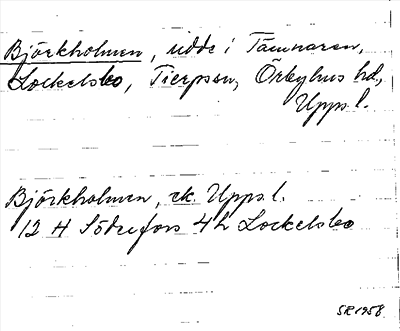 Björkholmen, udde i Tämnaren,
Lockelsbo, Tierps sn, Örbyhus hd,
Upps. l.
Björkholmen, ek. Upps. l.
12 H Söderfors 4 h Lockelsbo
SR 1958